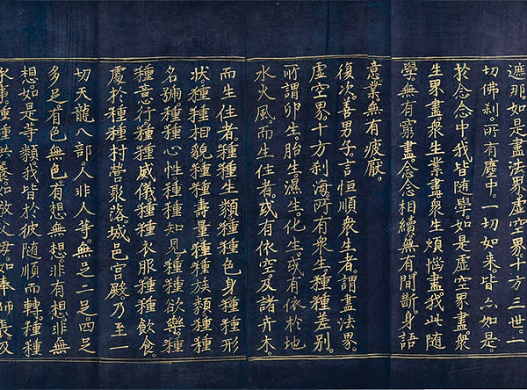 遮那如是盡法界虛空界十方三世一
切佛刹所有塵中一切如來皆亦如是
於念念中我皆隨學如是虛空界盡衆
生界盡衆生業盡衆生煩惱盡我此隨
學無有窮盡念念相續無有間斷身語
意業無有疲厭
復次善男子言恒順衆生者謂盡法界
虛空界十方刹海所有衆生種種差別
所謂卵生胎生濕生化生或有依於地
水火風而生住者或有依空及諸卉木
而生住者種種生類種種色身種種形
狀種種相貌種種壽量種種族類種種
名號種種心性種種知見種種欲樂種
種意行種種威儀種種衣服種種飲食
處於種種村營聚落城邑宮殿乃至一
切天龍八部人非人等無足二足四足
多足有色無色有想無想非有想非無
想如是等類我皆於彼隨順而轉種種
承事種種供養如敬父母如奉師長及